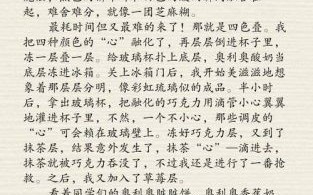 起，难舍难分，就像一团芝麻糊。
最耗时间但又最难的来了！那就是四色叠。我
把四种颜色的“心”融化了，再层层倒进杯子里，
冻一层叠一层。给玻璃杯扑上底层，奥利奥酸奶当
底层冻进冰箱。关上冰箱门后，我开始美滋滋地想
象着那层层分明，像彩虹玻璃似的成品。半小时
后，拿出玻璃杯，把融化的巧克力用滴管小心翼翼
地灌进杯子里，不然，一个不小心，那些调皮的
“心”可会赖在玻璃壁上。冻好巧克力层，又到了
抹茶层，结果意外发生了，抹茶“心”—滴进去，
抹茶就被巧克力吞没了，不过我还是进行了一番抢
救。之后，我又加入了草莓层。
看着同学们的奥利奥脏脏饼、奥利奥香蕉奶